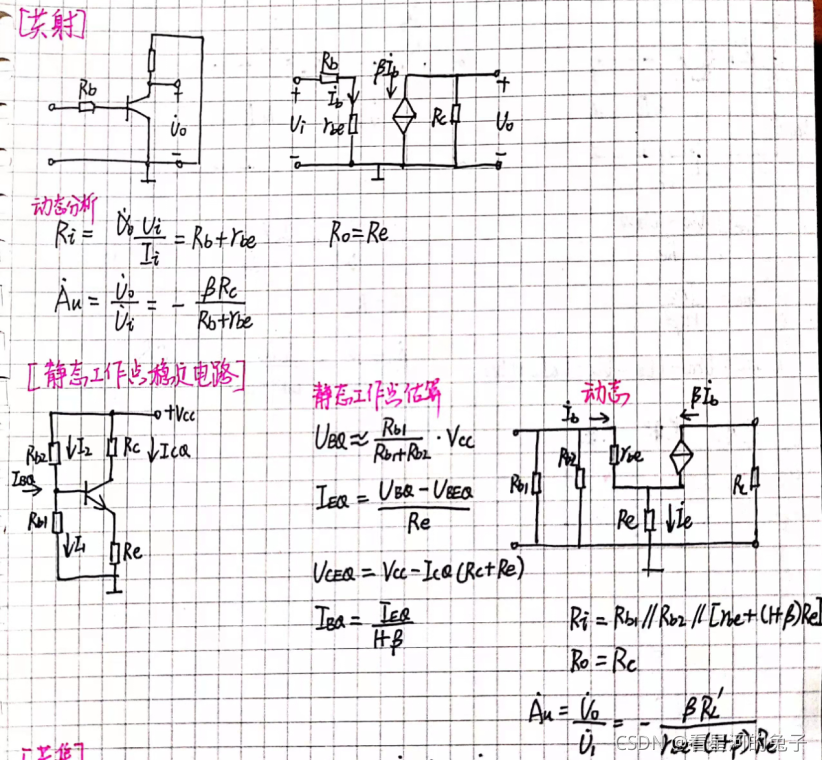 [共射]
Rb
U̇o
+
−
Rb
İb
rbe
βİb
Rc
Ui
Uo
动态分析
Ri = Ui/Ii = Rb+rbe
Ro=Re
Ȧu = U̇o/U̇i = − βRc/(Rb+rbe)
[静态工作点稳定电路]
+Vcc
Rb2
I2
Rc
ICQ
IBQ
Rb1
I1
Re
静态工作点估算
UBQ≈ Rb1/(Rb1+Rb2) · Vcc
IEQ = (UBQ−UBEQ)/Re
UCEQ = Vcc−ICQ(Rc+Re)
IBQ = IEQ/(1+β)
动态
İb
βİb
Rb1
Rb2
rbe
Re
İe
Ri = Rb1//Rb2//[rbe+(1+β)Re]
Ro = Rc
Ȧu = U̇o/U̇i = − βRL′/(rbe+(1+β)Re)
CSDN @看星河的兔子